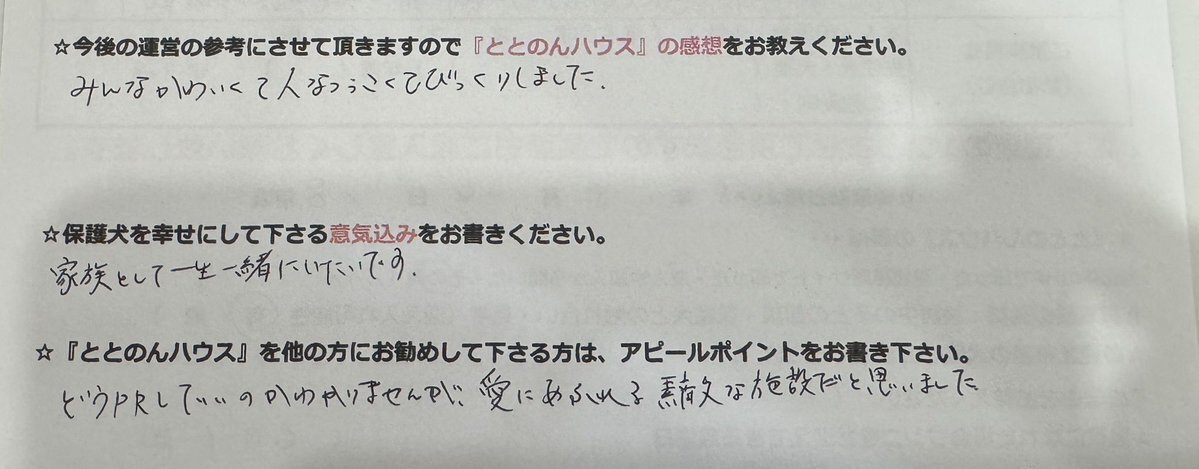 ☆今後の運営の参考にさせて頂きますので『ととのんハウス』の感想をお教えください。
みんなかわいくて人なつっこくてびっくりしました.
☆保護犬を幸せにして下さる意気込みをお書きください。
家族として一生一緒にいたいです.
☆『ととのんハウス』を他の方にお勧めして下さる方は、アピールポイントをお書き下さい。
どうPRしていいのかわかりませんが、愛にあふれる素敵な施設だと思いました